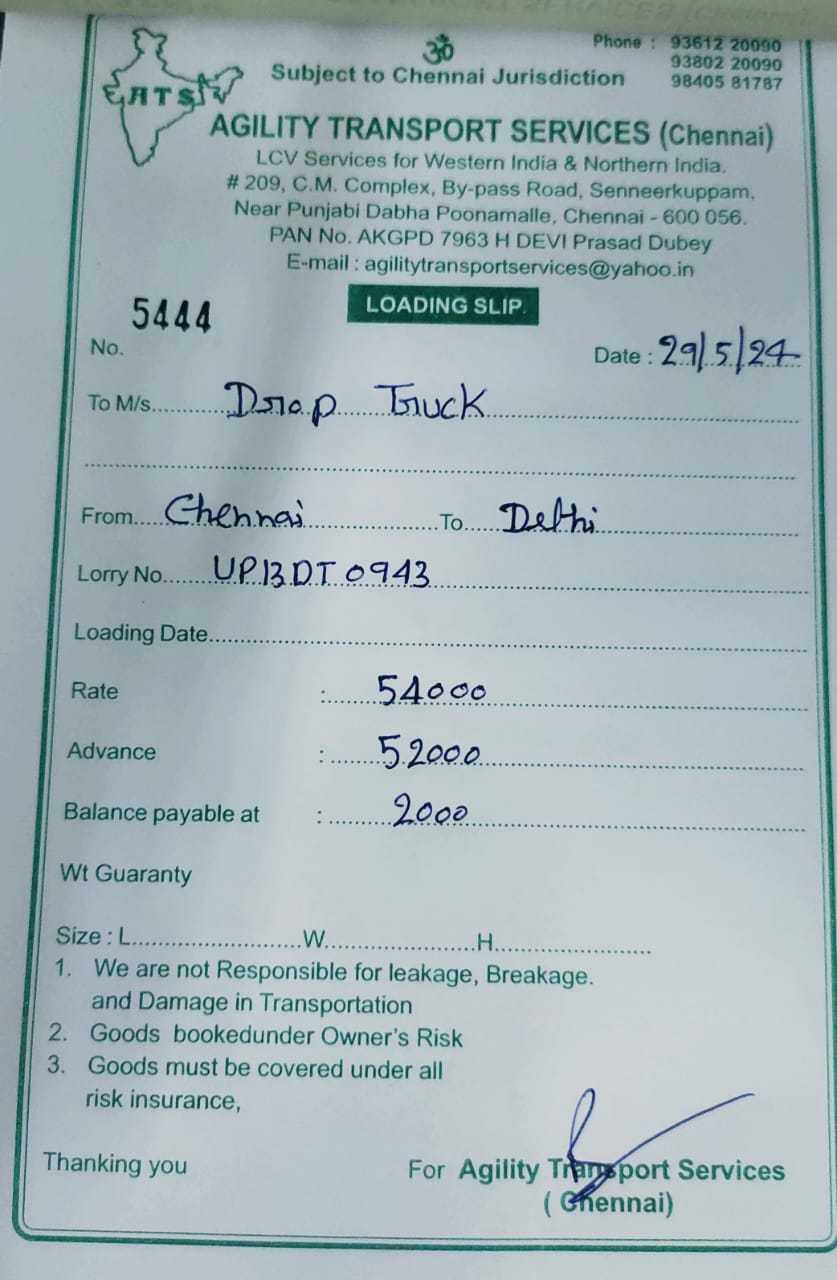 ॐ
Phone : 93612 20090
93802 20090
98405 81787
Subject to Chennai Jurisdiction
ATS
AGILITY TRANSPORT SERVICES (Chennai)
LCV Services for Western India & Northern India.
# 209, C.M. Complex, By-pass Road, Senneerkuppam,
Near Punjabi Dabha Poonamalle, Chennai - 600 056.
PAN No. AKGPD 7963 H DEVI Prasad Dubey
E-mail : agilitytransportservices@yahoo.in
LOADING SLIP.
No. 5444
Date : 29/5/24
To M/s. Drop Truck
From Chennai To Delhi
Lorry No. UP13DT0943
Loading Date
Rate : 54000
Advance : 52000
Balance payable at : 2000
Wt Guaranty
Size : L W H
1. We are not Responsible for leakage, Breakage.
and Damage in Transportation
2. Goods bookedunder Owner's Risk
3. Goods must be covered under all
risk insurance,
Thanking you
For Agility Transport Services
( Chennai)